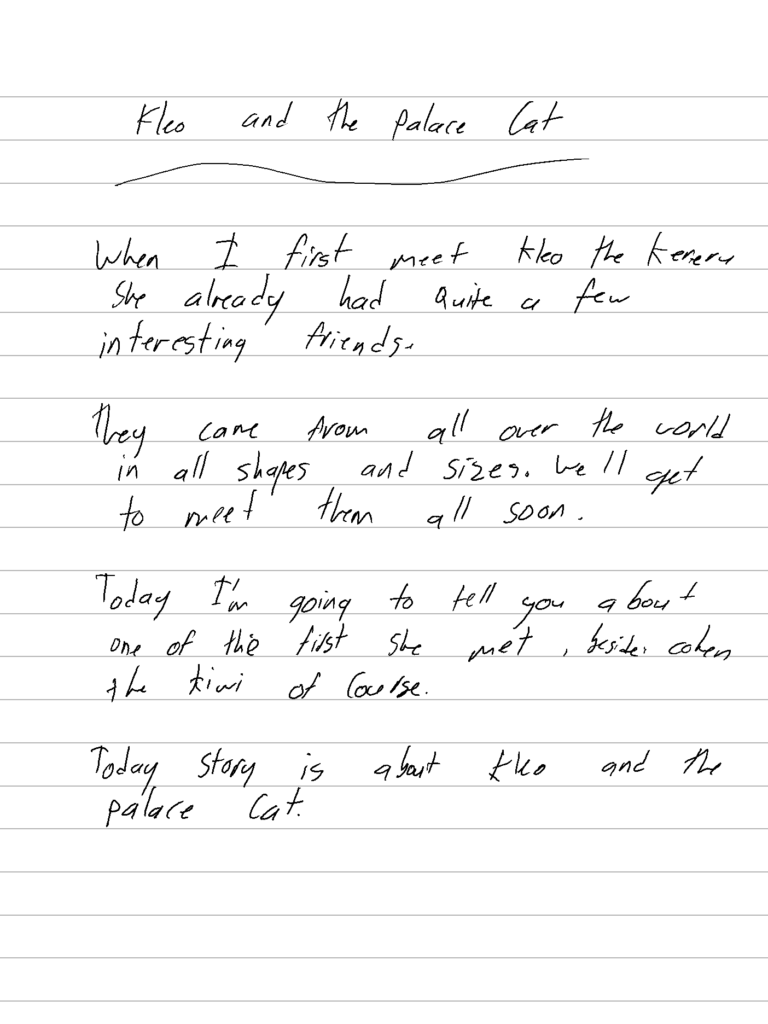 Kleo and the palace Cat
When I first meet Kleo the Kereru
She already had Quite a few
interesting friends.
They came from all over the world
in all shapes and sizes. We'll get
to meet them all soon.
Today I'm going to tell you about
one of the first she met, besides cohen
the kiwi of Course.
Today story is about Kleo and the
palace Cat.